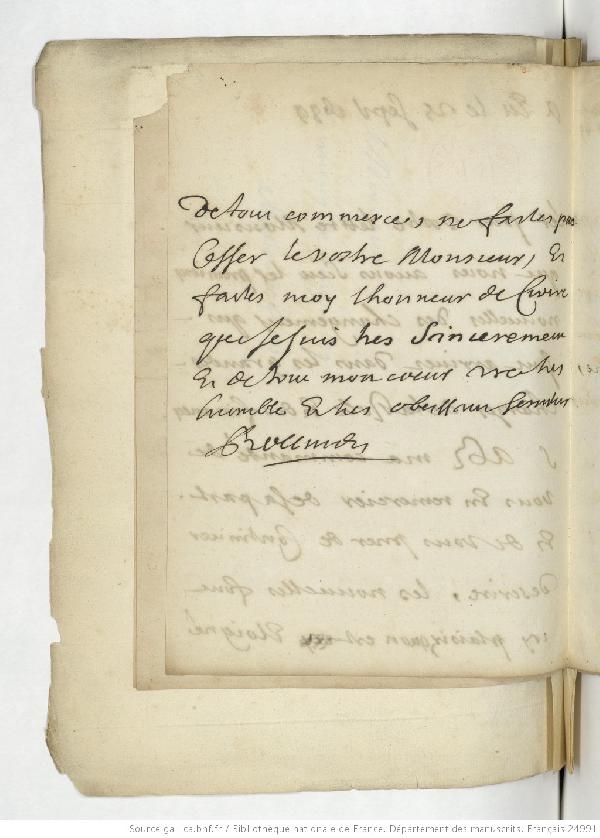 De tout commerce, ne faites pas
Cesser le vostre Monsieur, Et
faites moy l honneur de Croire
que Je suis tres Sincerement
Et de tout mon coeur vre tres
humble Et tres obeissant Serviteur
Source gallica.bnf.fr / Bibliothèque nationale de France. Département des manuscrits. Français 24991